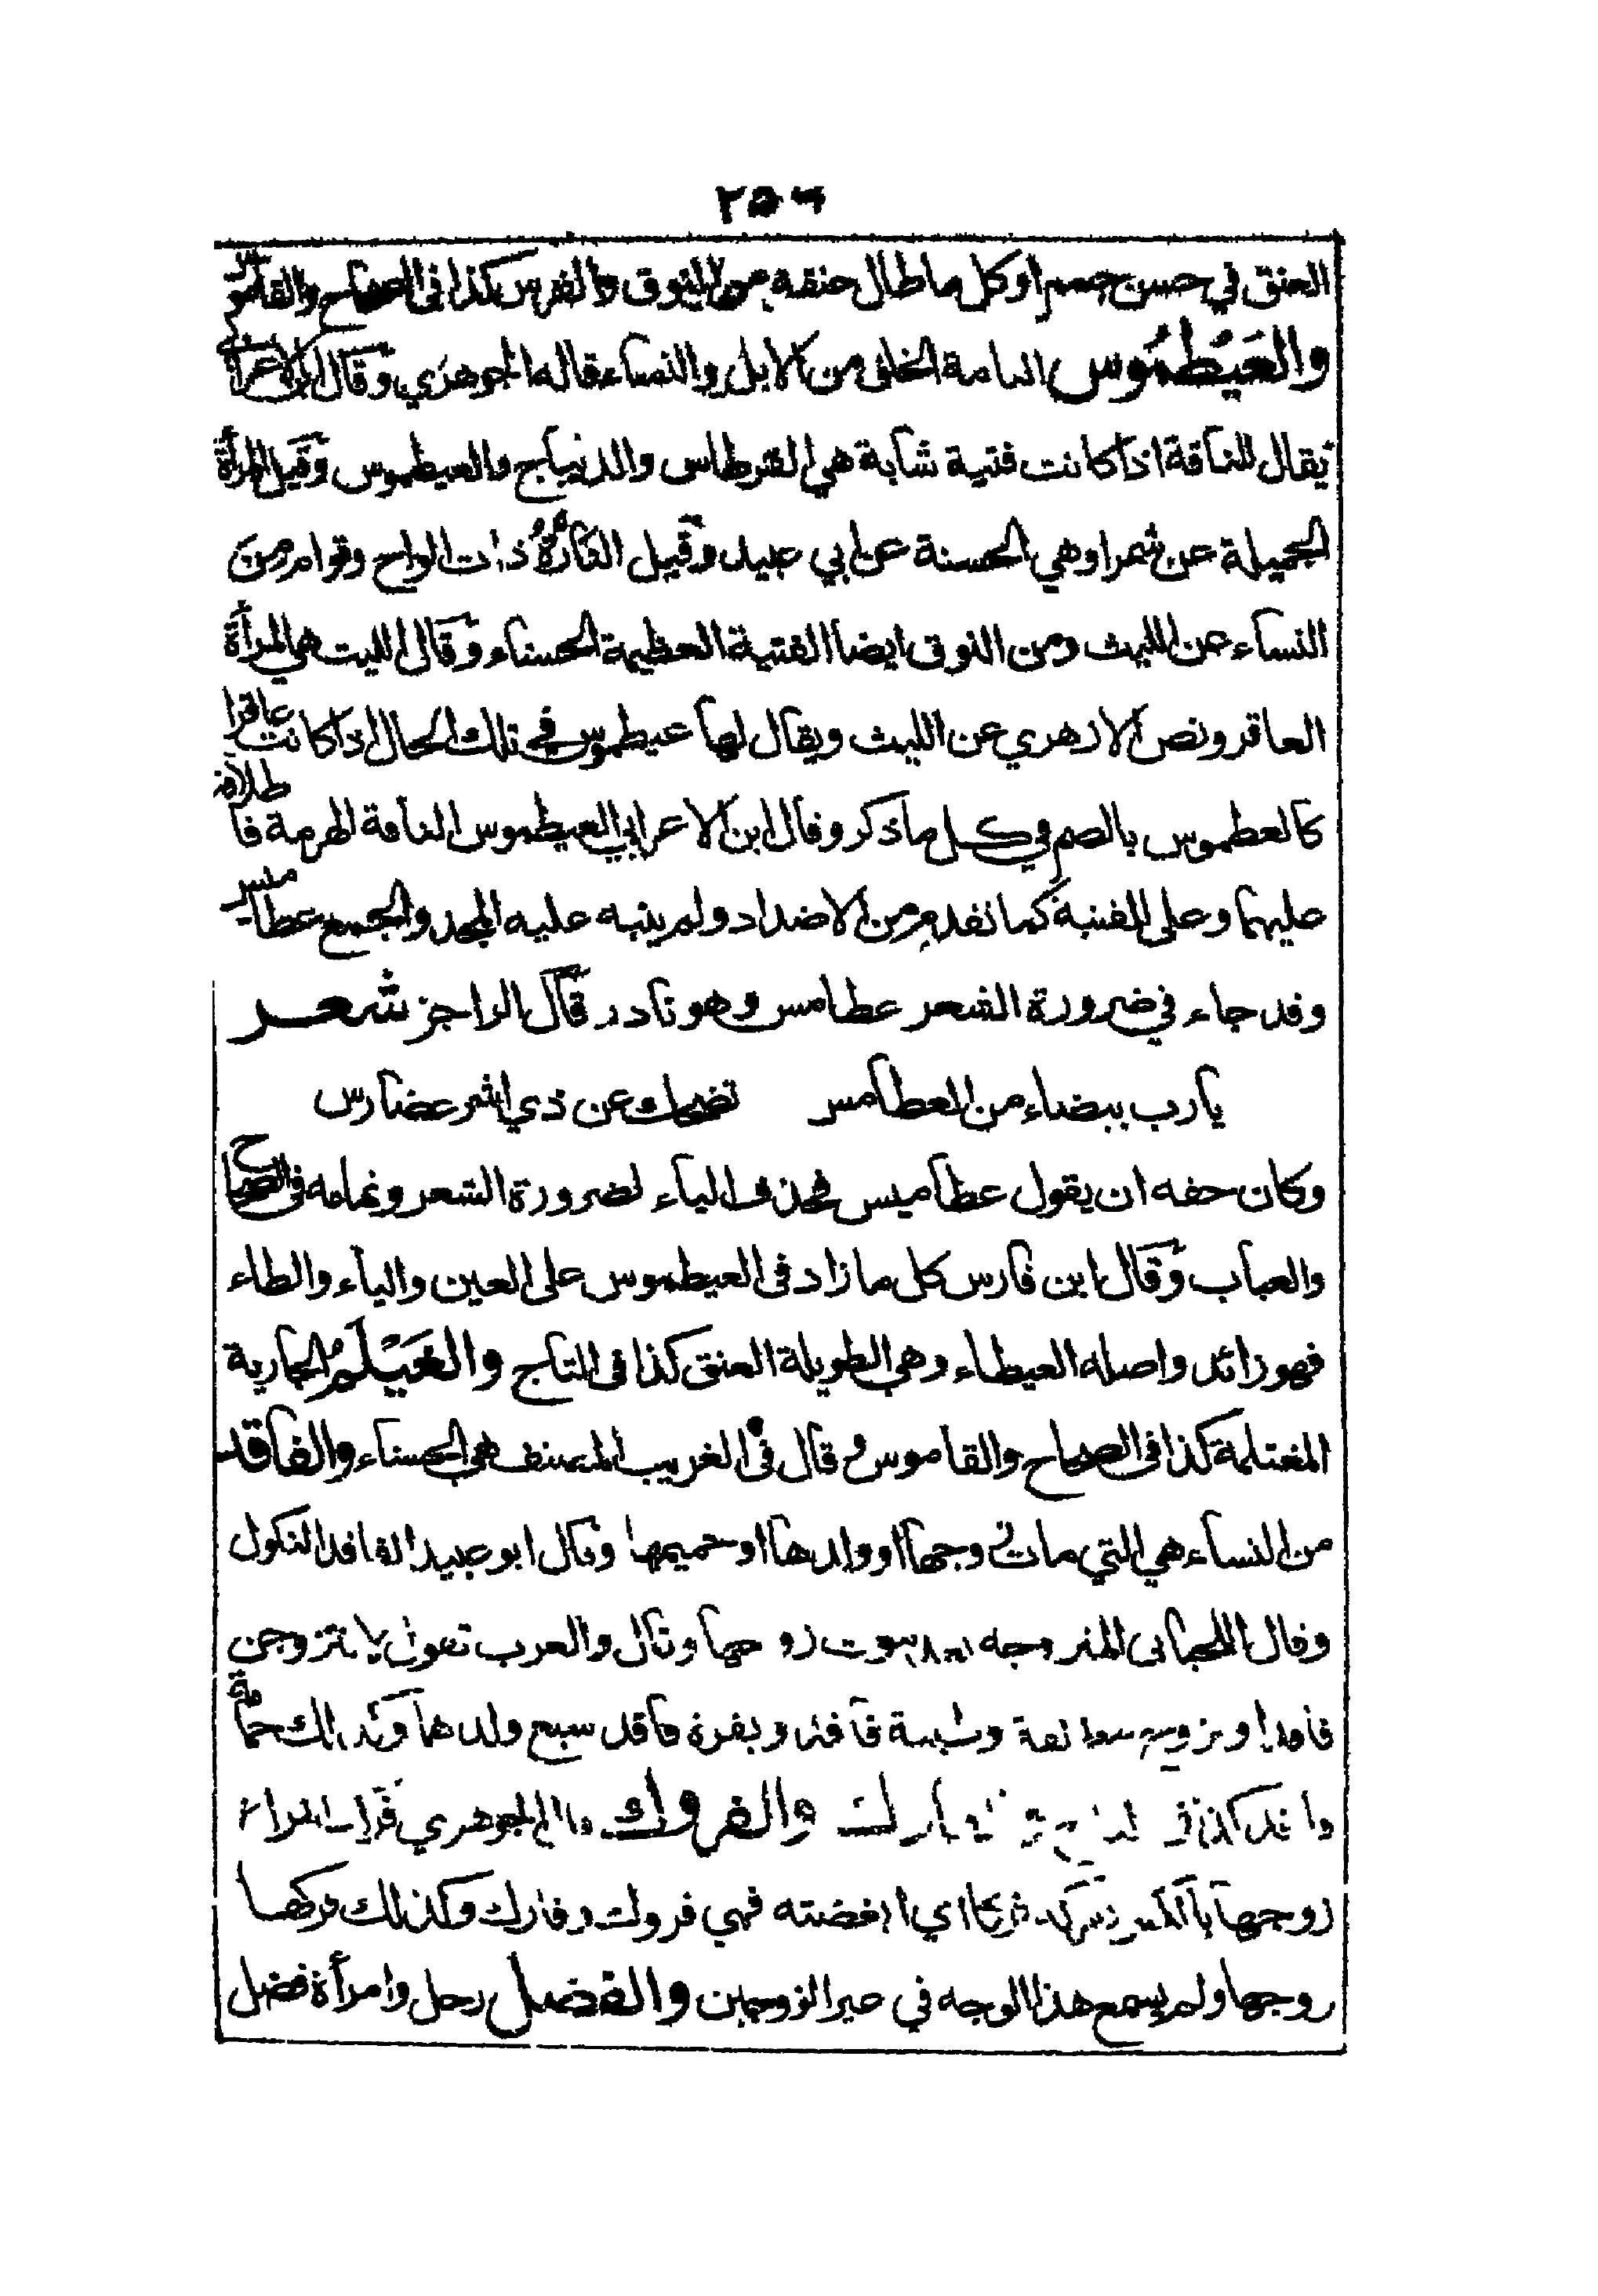 ٢٥٦
العنق في حسن جسم او كل ما طال عنقه من النوق والفرس كذا فى الصحاح والقاموس
والعَيْطَمُوس التامة الخلق من الابل والنساء قاله الجوهري وقال ابن الاعرابي
يقال للناقة اذا كانت فتية شابة هي القرطاس والديباج والعيطموس وقيل المرأة
الجميلة عن شمر او هي الحسنة عن ابي عبيد وقيل التارَّةُ ذات الواح وقوام من
النساء عن الليث ومن النوق ايضا الفتية العظيمة الحسناء وقال الليث هي المرأة
العاقر ونص الازهري عن الليث ويقال لها عيطموس في تلك الحال اذا كانت عاقرا
كالعطموس بالضم في كل ما ذكر وقال ابن الاعرابي العيطموس الناقة الهرمة فاطلاقه
عليهما وعلى الفتية كما تقدم من الاضداد ولم ينبه عليه المجد والجمع عطاميس
وقد جاء في ضرورة الشعر عطامس وهو نادر قال الراجز شعر
يا رب بيضاء من العطامس تضحك عن ذي اشر عضارس
وكان حقه ان يقول عطاميس فحذف الياء لضرورة الشعر وتمامه فى الصحاح
والعباب وقال ابن فارس كل ما زاد فى العيطموس على العين والياء والطاء
فهو زائد واصله العيطاء وهي الطويلة العنق كذا فى التاج والغَيْلَمُ الجارية
المغتلمة كذا فى الصحاح والقاموس و قال فى الغريب المصنف هي الحسناء والفاقد
من النساء هي التي مات زوجها او ولدها او حميمها وقال ابو عبيد الفاقد الثكول
وقال اللحياني المتزوجة بموت زوجها وقال والعرب تقول لا تتزوجن
فاقدا وتزوج مطلقة وظبية فاقد وبقرة فاقد سبع ولدها وكذلك حمامة
فاقد كذا فى والفروك قال الجوهري فركت المراة
زوجها بالكسر فركا اي ابغضته فهي فروك وفارك وكذلك فركها
زوجها ولم يسمع هذا الوجه في غير الزوجين والفضل رجل وامرأة فضل